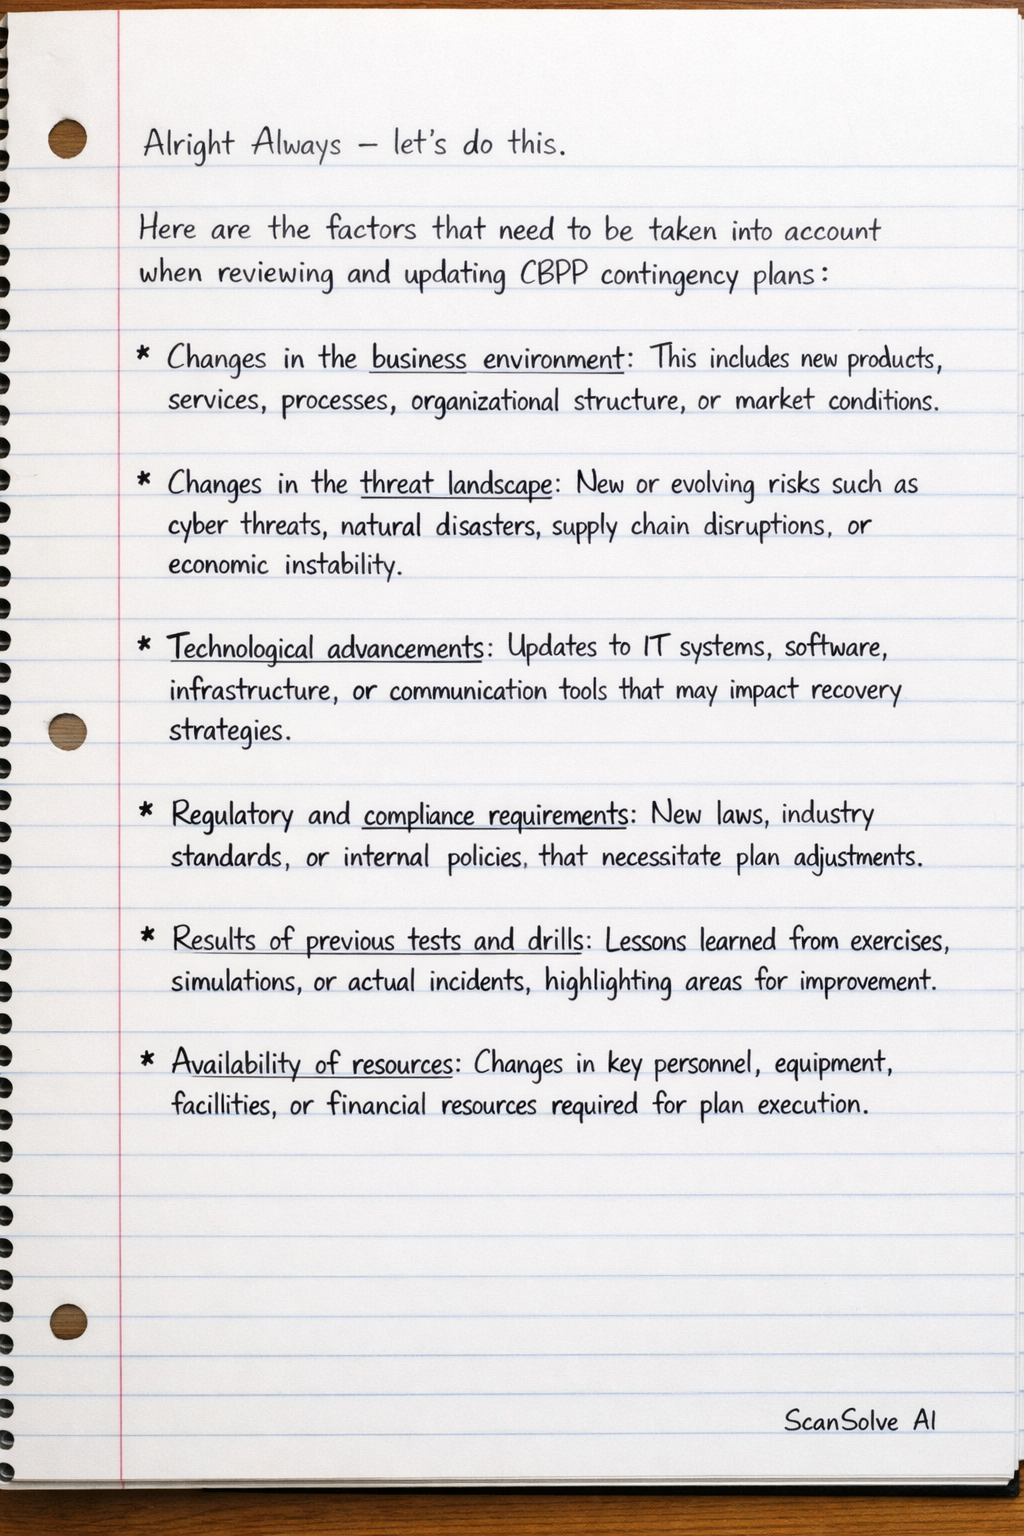 Alright Always – let's do this.
Here are the factors that need to be taken into account
when reviewing and updating CBPP contingency plans:
* Changes in the business environment: This includes new products,
services, processes, organizational structure, or market conditions.
* Changes in the threat landscape: New or evolving risks such as
cyber threats, natural disasters, supply chain disruptions, or
economic instability.
* Technological advancements: Updates to IT systems, software,
infrastructure, or communication tools that may impact recovery
strategies.
* Regulatory and compliance requirements: New laws, industry
standards, or internal policies, that necessitate plan adjustments.
* Results of previous tests and drills: Lessons learned from exercises,
simulations, or actual incidents, highlighting areas for improvement.
* Availability of resources: Changes in key personnel, equipment,
facillities, or financial resources required for plan execution.
ScanSolve AI